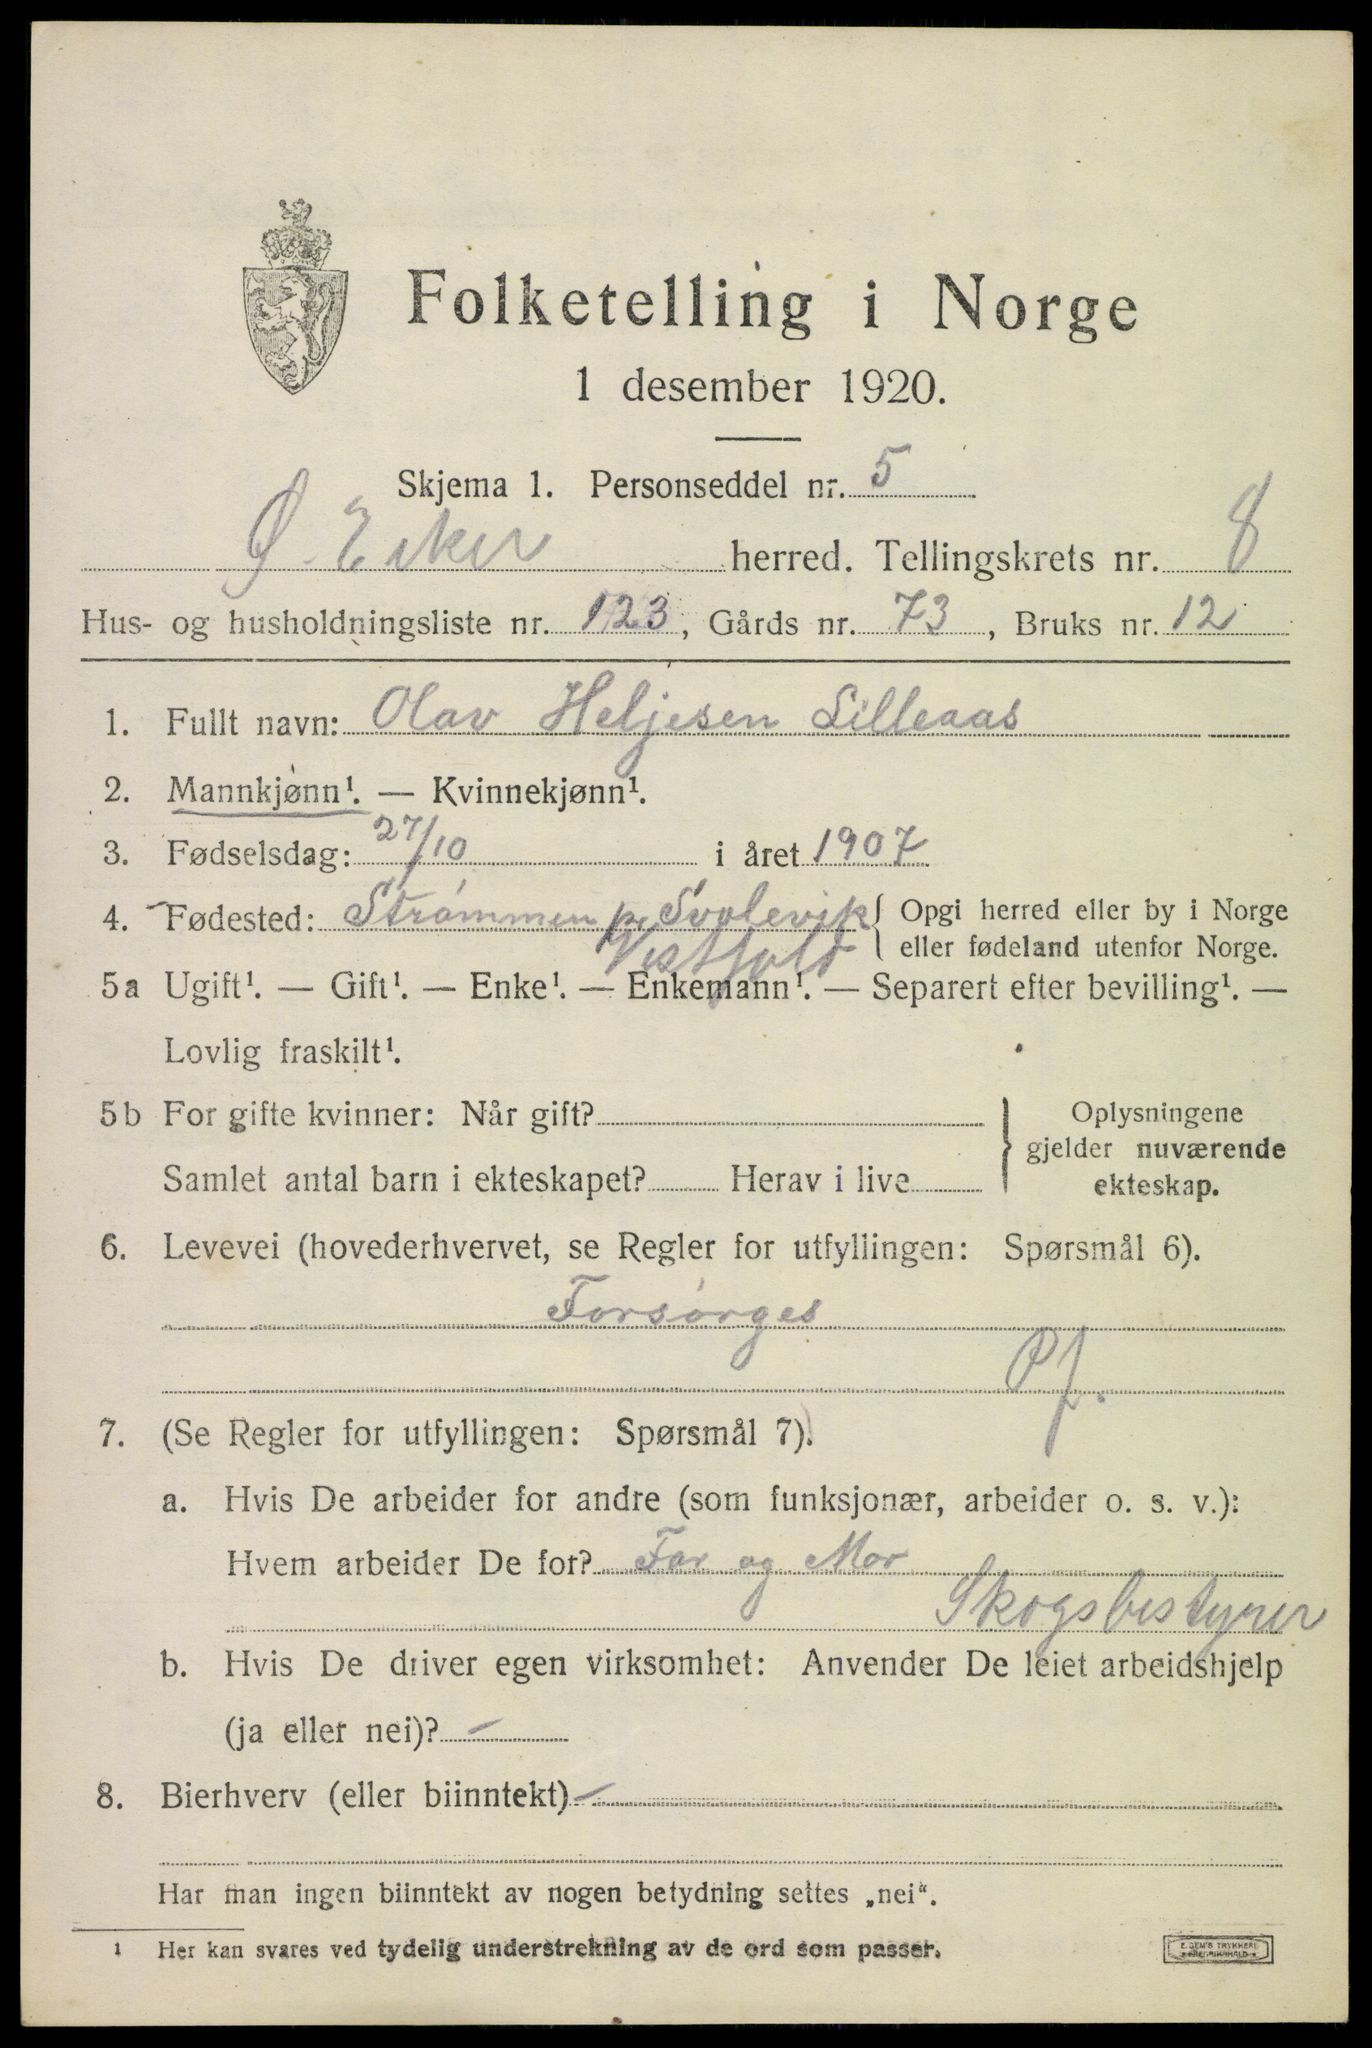 Folketelling i Norge
1 desember 1920.
Skjema 1. Personseddel nr. 5
Ø. Eiker herred. Tellingskrets nr. 8
Hus- og husholdningsliste nr. 123, Gårds nr. 73, Bruks nr. 12
1. Fullt navn: Olav Heljesen Lilleaas
2. Mannkjønn¹. — Kvinnekjønn¹.
3. Fødselsdag: 27/10 i året 1907
4. Fødested: Strømmen pr Svelevik { Opgi herred eller by i Norge
Vestfold eller fødeland utenfor Norge.
5a Ugift¹. — Gift¹. — Enke¹. — Enkemann¹. — Separert efter bevilling¹. —
Lovlig fraskilt¹.
5b For gifte kvinner: Når gift? } Oplysningene
gjelder nuværende
Samlet antal barn i ekteskapet? Herav i live ekteskap.
6. Levevei (hovederhvervet, se Regler for utfyllingen: Spørsmål 6).
Forsørges
Pf.
7. (Se Regler for utfyllingen: Spørsmål 7).
a. Hvis De arbeider for andre (som funksjonær, arbeider o. s. v.):
Hvem arbeider De for? Far og Mor
Skogsbestyrer
b. Hvis De driver egen virksomhet: Anvender De leiet arbeidshjelp
(ja eller nei)? –
8. Bierhverv (eller biinntekt) –
Har man ingen biinntekt av nogen betydning settes „nei“.
1 Her kan svares ved tydelig understrekning av de ord som passer.
E. SEM'S TRYKKERI
FREDRIKSHALD